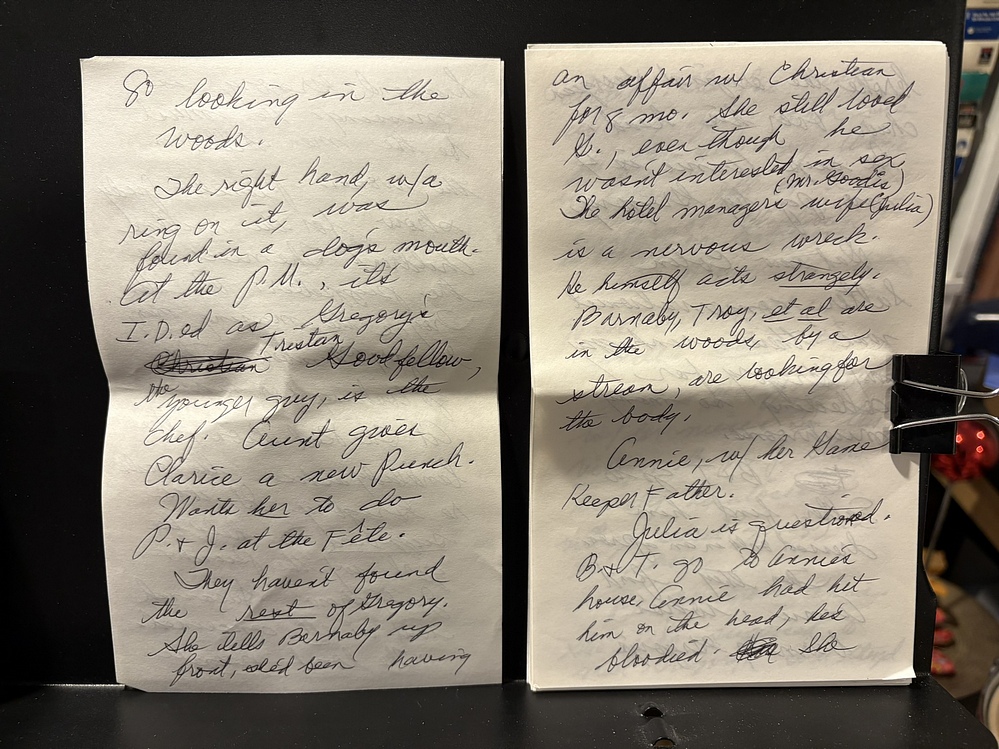 Go looking in the
woods.
The right hand, w/a
ring on it, was
found in a dog's mouth.
At the P.M., its
I.D.ed as Gregory's
Christian Tristan Goodfellow,
the younger guy, is the
chef. Aunt gives
Clarice a new Punch.
Wants her to do
P. + J. at the Fête.
They haven't found
the rest of Gregory.
She tells Barnaby up
front, she'd been having
an affair w/ Christian
for 8 mo. She still loved
G., even though he
wasn't interested in sex
(Mr. Goodis)
The hotel managers wife (Julia)
is a nervous wreck.
He himself acts strangely.
Barnaby, Troy, et al are
in the woods, by a
stream, are looking for
the body.
Annie, w/ her Game
Keeper Father.
Julia is questioned.
B. + T. go to Annie's
house, Annie had hit
him on the head, he's
bloodied. She